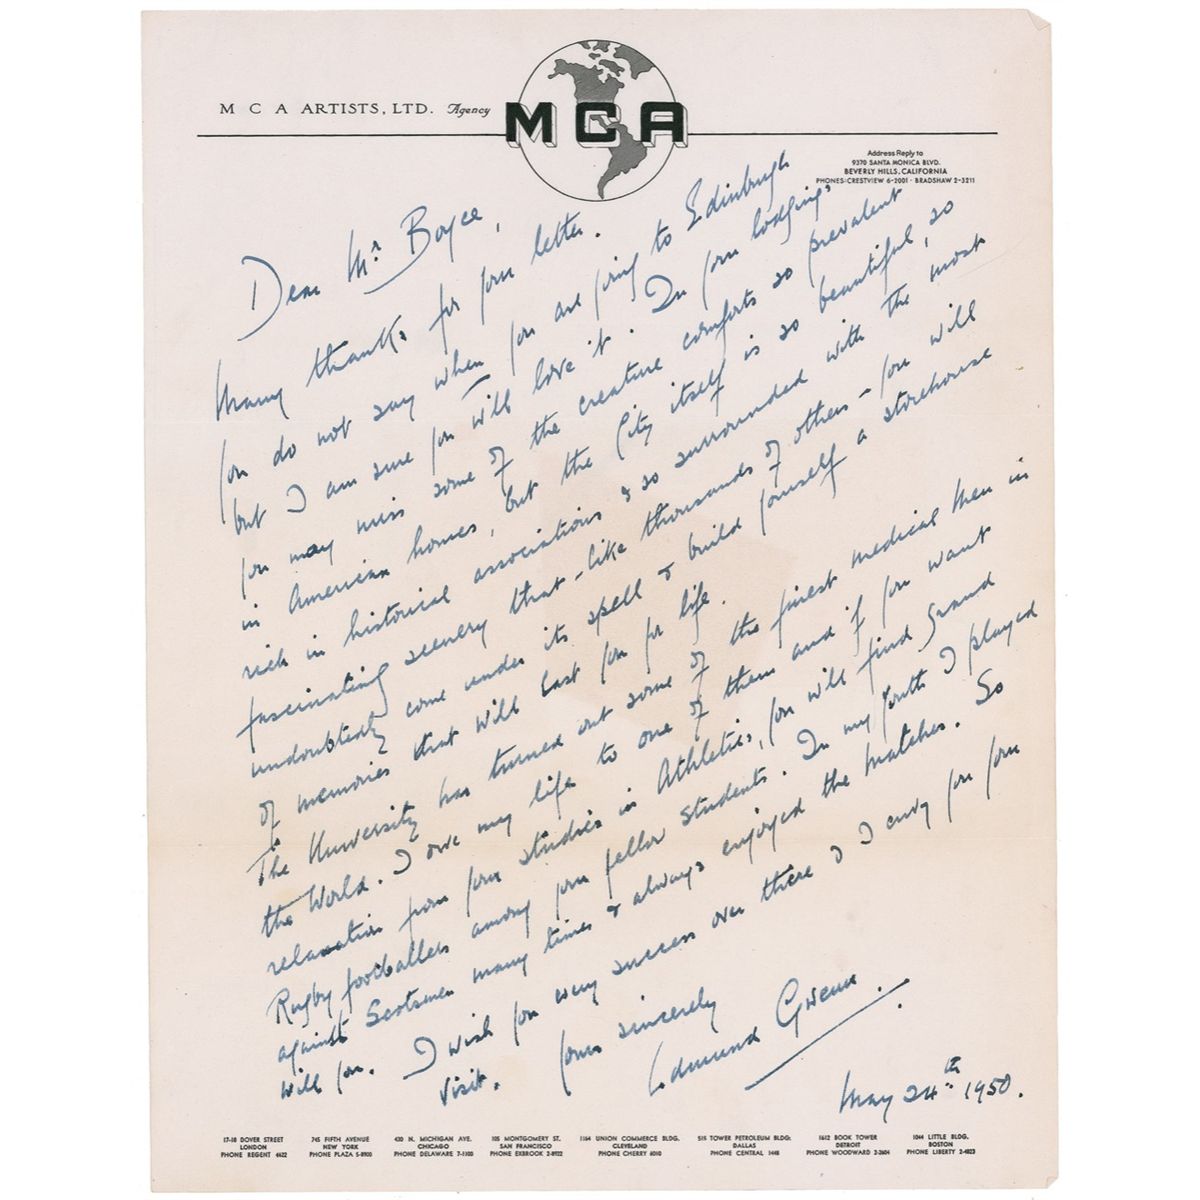 M C A ARTISTS, LTD. Agency
MCA
Address Reply to
9370 SANTA MONICA BLVD.
BEVERLY HILLS, CALIFORNIA
PHONES: CRESTVIEW 6-2001 · BRADSHAW 2-3211
Dear Mr Boyce,
Many thanks for your letter.
You do not say when you are going to Edinburgh
but I am sure you will love it. In your lodgings
you may miss some of the creature comforts so prevalent
in American homes, but the City itself is so beautiful, so
rich in historical associations & so surrounded with the most
fascinating scenery that - like thousands of others - you will
undoubtedly come under its spell & build yourself a storehouse
of memories that will last you for life.
The University has turned out some of the finest medical men in
the World. I owe my life to one of them and if you want
relaxation from your studies in Athletics, you will find grand
Rugby footballers among your fellow students. In my youth I played
against Scotsmen many times & always enjoyed the matches. So
will you. I wish you every success over there & I envy you your
visit.
Yours sincerely
Edmund Gwenn.
May 24th 1950.
17-18 DOVER STREET
LONDON
PHONE REGENT 4622
745 FIFTH AVENUE
NEW YORK
PHONE PLAZA 5-8900
430 N. MICHIGAN AVE.
CHICAGO
PHONE DELAWARE 7-1100
105 MONTGOMERY ST.
SAN FRANCISCO
PHONE EXBROOK 2-8922
1164 UNION COMMERCE BLDG.
CLEVELAND
PHONE CHERRY 6010
515 TOWER PETROLEUM BLDG.
DALLAS
PHONE CENTRAL 1448
1612 BOOK TOWER
DETROIT
PHONE WOODWARD 2-2604
1044 LITTLE BLDG.
BOSTON
PHONE LIBERTY 2-4823